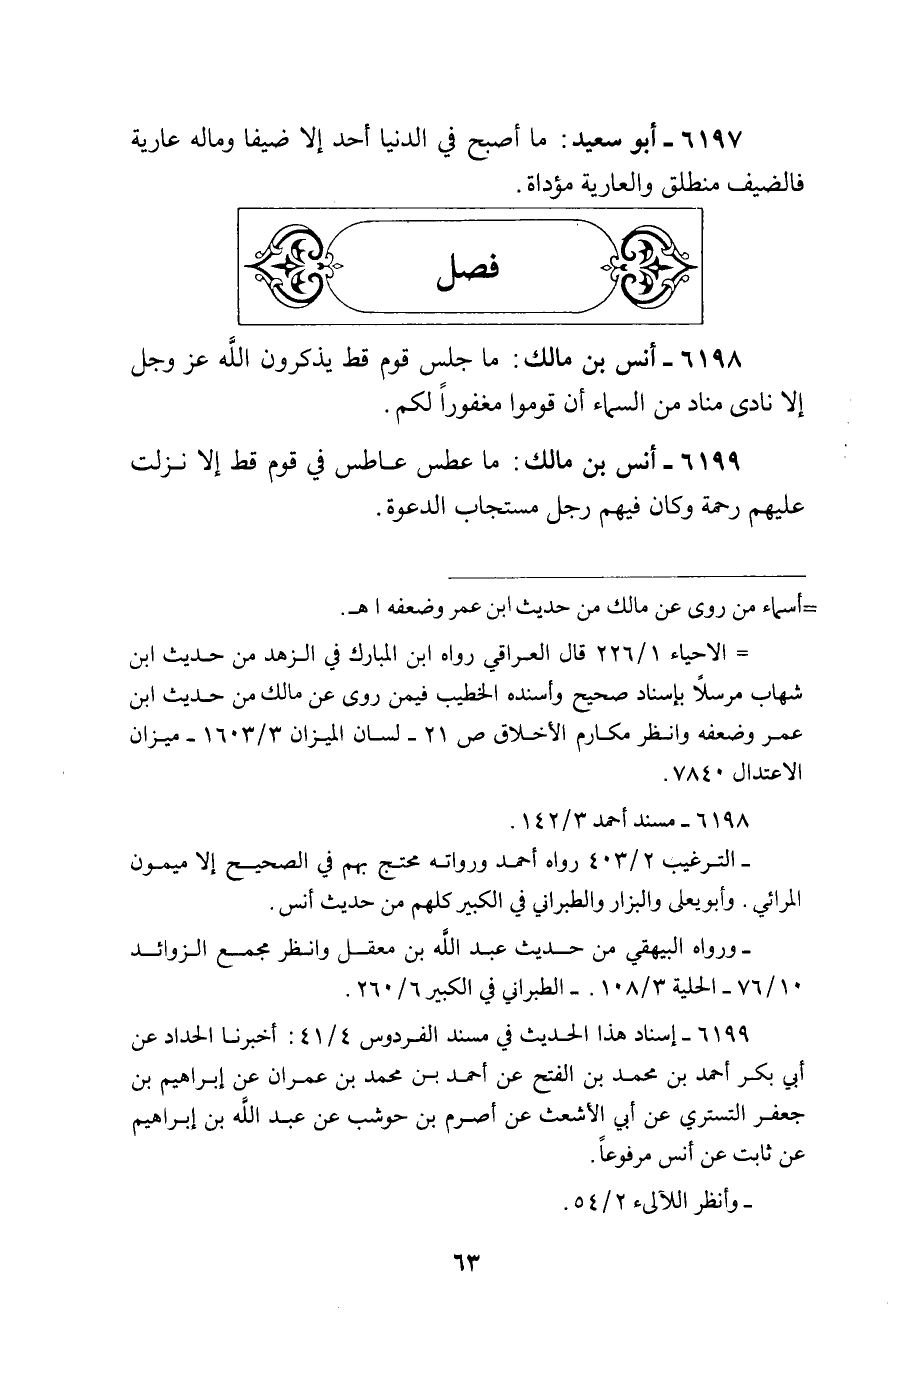 ٦١٩٧ ـ أبو سعيد: ما أصبح في الدنيا أحد إلا ضيفا وماله عارية
فالضيف منطلق والعارية مؤداة.
فصل
٦١٩٨ ـ أنس بن مالك: ما جلس قوم قط يذكرون اللَّه عز وجل
إلا نادى مناد من السماء أن قوموا مغفوراً لكم.
٦١٩٩ ـ أنس بن مالك: ما عطس عاطس في قوم قط إلا نزلت
عليهم رحمة وكان فيهم رجل مستجاب الدعوة.
=أسماء من روى عن مالك من حديث ابن عمر وضعفه ا هـ.
= الاحياء ٢٢٦/١ قال العراقي رواه ابن المبارك في الزهد من حديث ابن
شهاب مرسلاً بإسناد صحيح وأسنده الخطيب فيمن روى عن مالك من حديث ابن
عمر وضعفه وانظر مكارم الأخلاق ص ٢١ ـ لسان الميزان ١٦٠٣/٣ ـ ميزان
الاعتدال ٧٨٤٠.
٦١٩٨ ـ مسند أحمد ١٤٢/٣.
ـ الترغيب ٤٠٣/٢ رواه أحمد ورواته محتج بهم في الصحيح إلا ميمون
المرائي. وأبو يعلى والبزار والطبراني في الكبير كلهم من حديث أنس.
ـ ورواه البيهقي من حديث عبد اللَّه بن معقل وانظر مجمع الزوائد
٧٦/١٠ ـ الحلية ١٠٨/٣. ـ الطبراني في الكبير ٢٦٠/٦.
٦١٩٩ ـ إسناد هذا الحديث في مسند الفردوس ٤١/٤: أخبرنا الحداد عن
أبي بكر أحمد بن محمد بن الفتح عن أحمد بن محمد بن عمران عن إبراهيم بن
جعفر التستري عن أبي الأشعث عن أصرم بن حوشب عن عبد اللَّه بن إبراهيم
عن ثابت عن أنس مرفوعاً.
ـ وأنظر اللآلىء ٥٤/٢.
٦٣